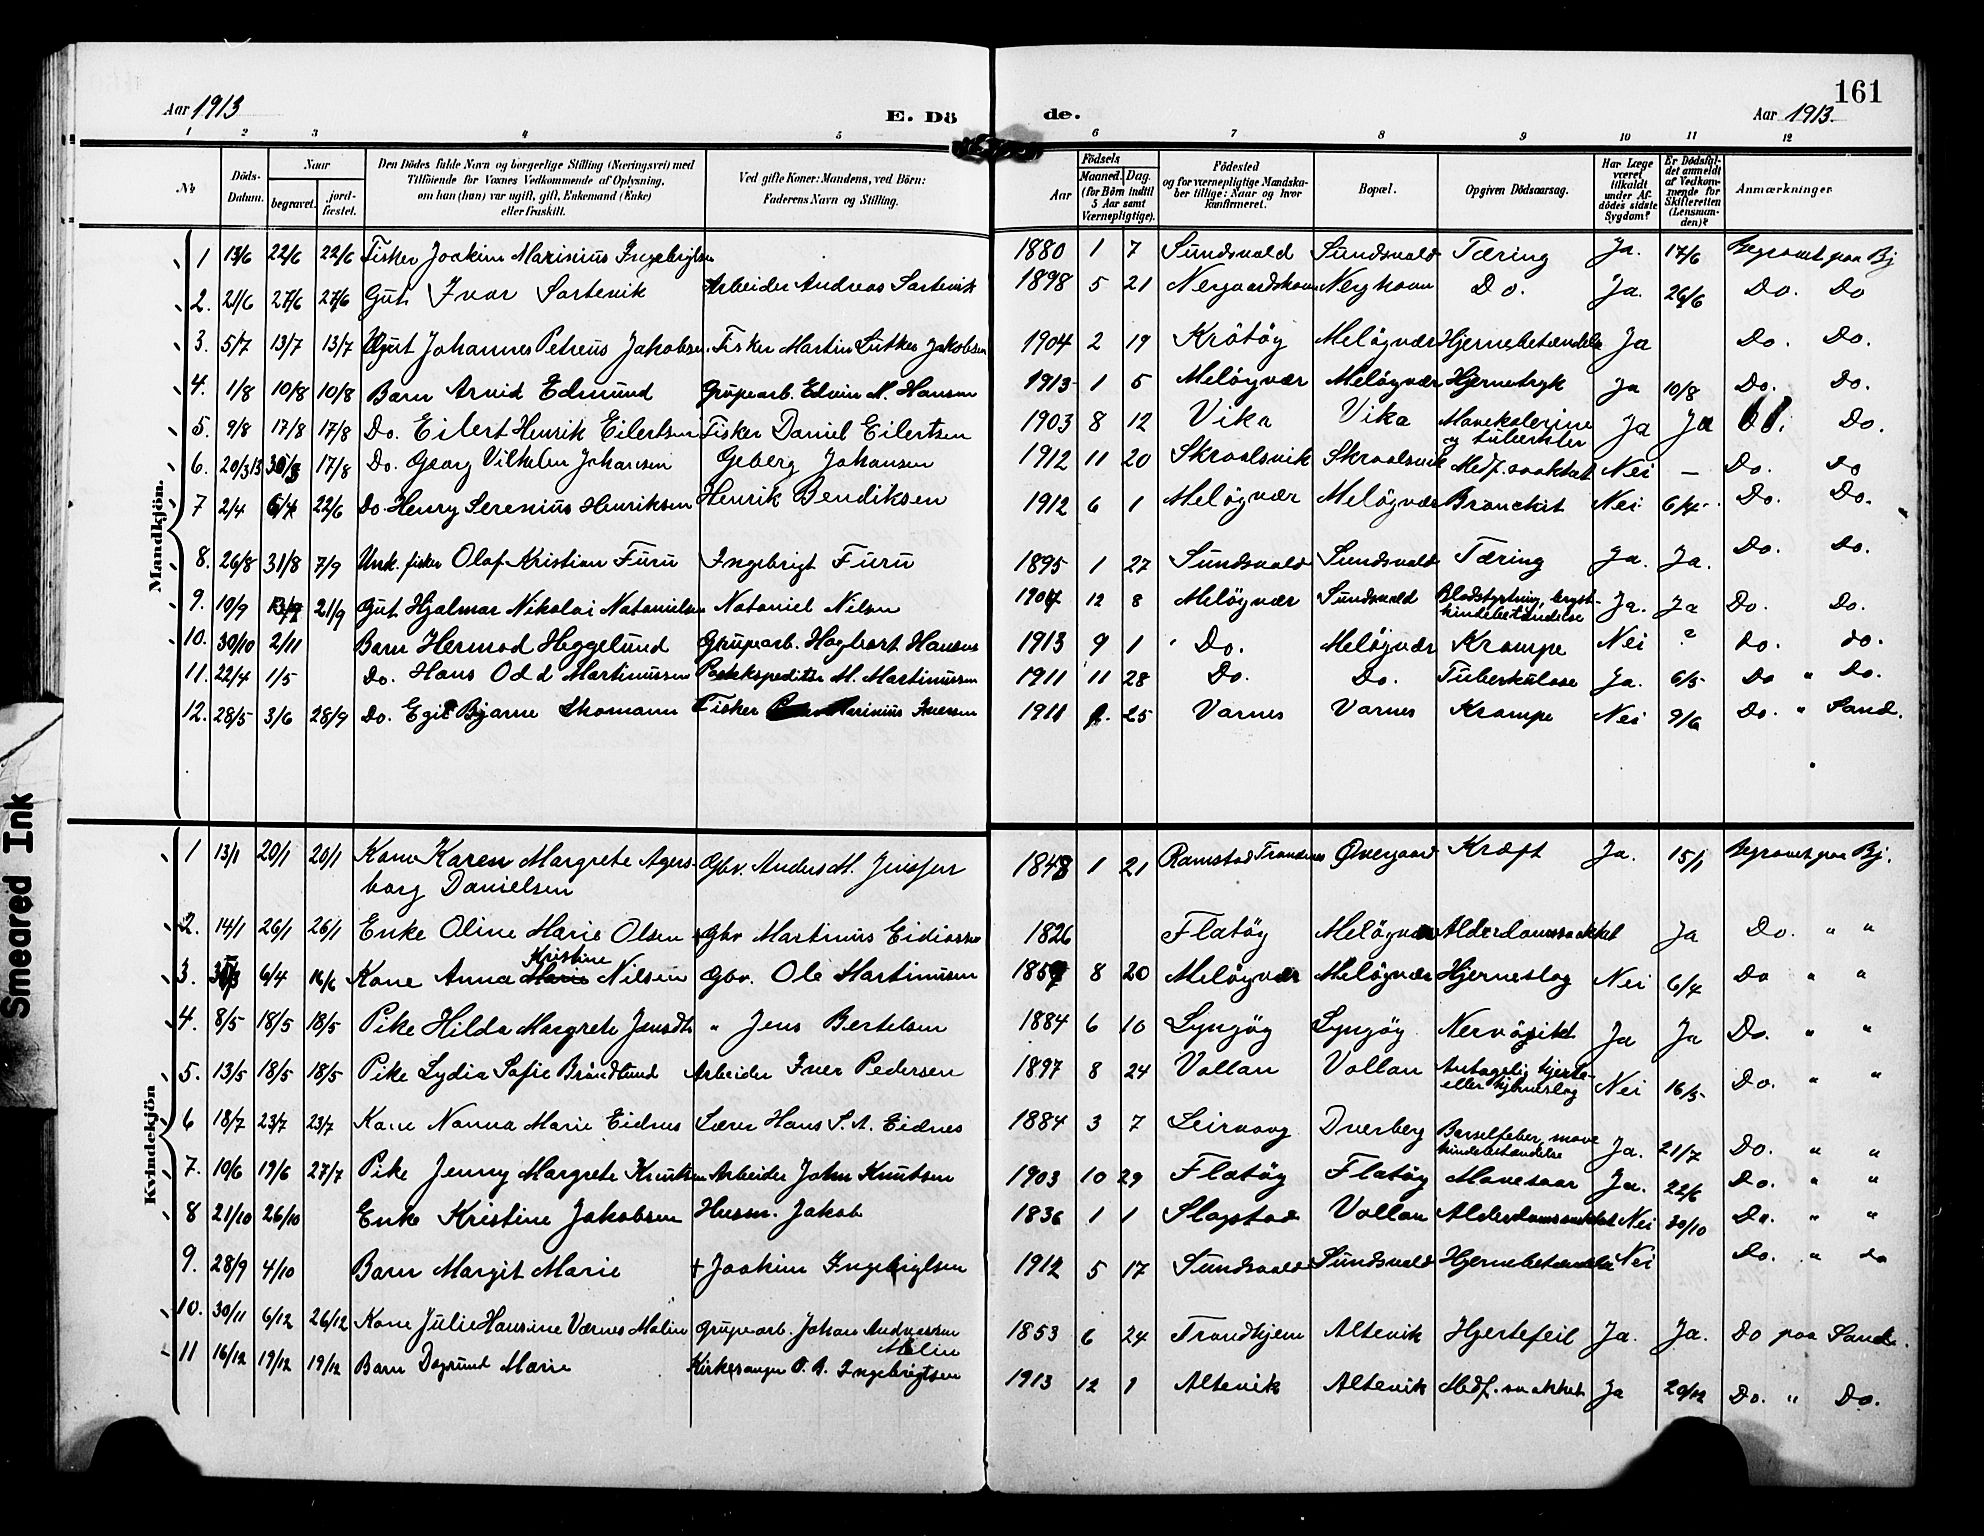 161
Aar 1913
E. Dö
de.
Aar 1913.
1 2 3 4 5 6 7 8 9 10 11 12
No
Döds-Datum.
Naar
begravet.
jord-fæstet.
Den Dödes fulde Navn og borgerlige Stilling (Næringsvei) med
Tilföiende for Voxnes Vedkommende af Oplysning,
om han (hun) var ugift, gift, Enkemand (Enke)
eller fraskilt.
Ved gifte Koner: Mandens, ved Börn:
Faderens Navn og Stilling.
Födsels
Aar
Maaned. Dag.
(for Börn indtil
5 Aar samt
Værnepligtige).
Födested
og for værnepligtige Mandska-
ber tillige: Naar og hvor
konfirmeret.
Bopæl.
Opgiven Dödsaarsag.
Har Læge
været
tilkaldt
under Af-
dödes sidste
Sygdom?
Er Dödsfal-
det anmeldt
af Vedkom-
mende for
Skifteretten
(Lensman-
den)?
Anmærkninger
Mandkjön.
1 13/6 22/6 22/6 Fisker Joakim Marinius Ingebrigtsen 1880 1 7 Sundsvald Sundsvald Tæring Ja. 17/6 Begravet paa Bj
2. 21/6 27/6 27/6 Gut Ivar Sortevik Arbeider Andreas Sortevik 1898 5 21 Do. Ja. 26/6 Do. Do
3. 5/7 13/7 13/7 Gut Johannes Petreus Jakobsen. Fisker Martin Luther Jakobsen 1904 2 19 Krötöy Melöyvær Hjernebetændelse Ja Do. Do.
4. 1/8 10/8 10/8 Barn Arvid Edmund Grupearb. Edvin M. Hansen 1913 1 5 Melöyvær Melöyvær Hjernetryk Ja 10/8 Do. Do.
5. 9/8 17/8 17/8 Do. Eilert Henrik Eilertsen Fisker Daniel Eilertsen 1903 8 12 Vika Vika Mavekolerine og tuberkler Ja Ja Do.
6. 20/3 13 17/8 Do. Georg Vilhelm Johansen Geberg Johansen 1912 11 20 Skrolsvik Skrolsvik Medf. svakhet Nei — Do. Do
7 2/4 6/4 22/6 Do. Henry Serenius Henriksen Henrik Bendiksen 1912 6 1 Melöyvær Melöyvær Bronchit Nei 6/4 Do. Do.
8. 26/8 31/8 7/9 Unk. fisker Olaf Kristian Furu Ingebrigt Furu 1895 1 27 Sundsvald Sundsvald Tæring Ja. Ja. Do. Do.
9. 10/9 21/9 Gut Hjalmar Nikolai Natanielsen Nataniel Nilsen 12 8 Melöyvær Sundsvald Blodstyrtning, bryst-
hindebetændelse Ja. Ja Do. Do.
10. 30/10 2/11 Barn Hermod Heggelund Grupearb. Hagbart Hansen 1913 9 1 Do. Melöyvær Krampe Nei ? do. do.
11. 22/4 1/5 Do. Hans Odd Martinussen M. Martinussen 1911 11 28 Do. Do. Tuberkulose Ja. 6/5 Do " Do.
12. 28/5 3/6 28/9 Do. Egil Bjarne Skomann Fisker Marinius Iversen 1911 25 Varnes Varnes Krampe Nei 9/6 Do. " Sand.
Kvindekjön
1 13/1 20/1 20/1 Kone Karen Margrete Agers-
borg Danielsen Gbr. Anders M. 1848 1 21 Ramstad Trondenes Övergaard Kræft Ja. 15/1 Begravet paa Bj.
2. 14/1 26/1 26/1 Enke Oline Marie Olsen Gbr Martinus Eidissen 1826 Flatöy Melöyvær Alderdomssvakhet Ja Do. " "
3. 6/4 16/6 Kone Anna Kristine Nilsen Gbr. Ole Martinussen 8 20 Melöyvær Melöyvær Hjerneslag Nei 6/4 Do " "
4. 8/5 18/5 18/5 Pike Hilda Margrete Jensdtr " Jens Bertelsen 1884 6 10 Lyngöy Lyngöy Ja Ja Do. " "
5. 13/5 18/5 18/5 Pike Lydia Sofie Bröndlund Arbeider Iver Pedersen 1897 8 24 Vollan Vollan Antagelig hjerte-
eller hjerneslag Nei 16/5 Do. " "
6 18/7 23/7 23/7 Kone Nanna Marie Eidnes Lærer Hans S. A. Eidnes 1884 3 7 Leirvaag Dverberg Barselfeber, mave
hindebetændelse Ja. 21/7 Do. " "
7. 10/6 19/6 27/7 Pike Jenny Margrete Knutsen Arbeider John Knutsen 1903 10 29 Flatöy Flatöy Mavesaar Ja. 22/6 Do. " "
8 21/10 26/10 Enke Kristine Jakobsen Husm. Jakob 1836 1 1 Slagstad Vollan Alderdomssvakhet Nei 30/10 Do. " "
9. 28/9 4/10 Barn Margit Marie + Joakim Ingebrigtsen 1912 5 17 Sundsvald Sundsvald Hjernebetændelse Nei Do. " do
10. 30/11 6/12 26/12 Kone Julie Hansine Værnes Molin Grupearb. Johan Andreassen
Molin 1853 6 24 Trondhjem Altevik Hjertefeil Ja. Ja. Do paa Sand.
11 16/12 19/12 19/12 Barn Dagrund Marie Kirkesanger O. A. Ingebrigtsen 1913 12 1 Altevik Altevik Medf. svakhet Ja 20/12 Do. " Do.
Smeared Ink